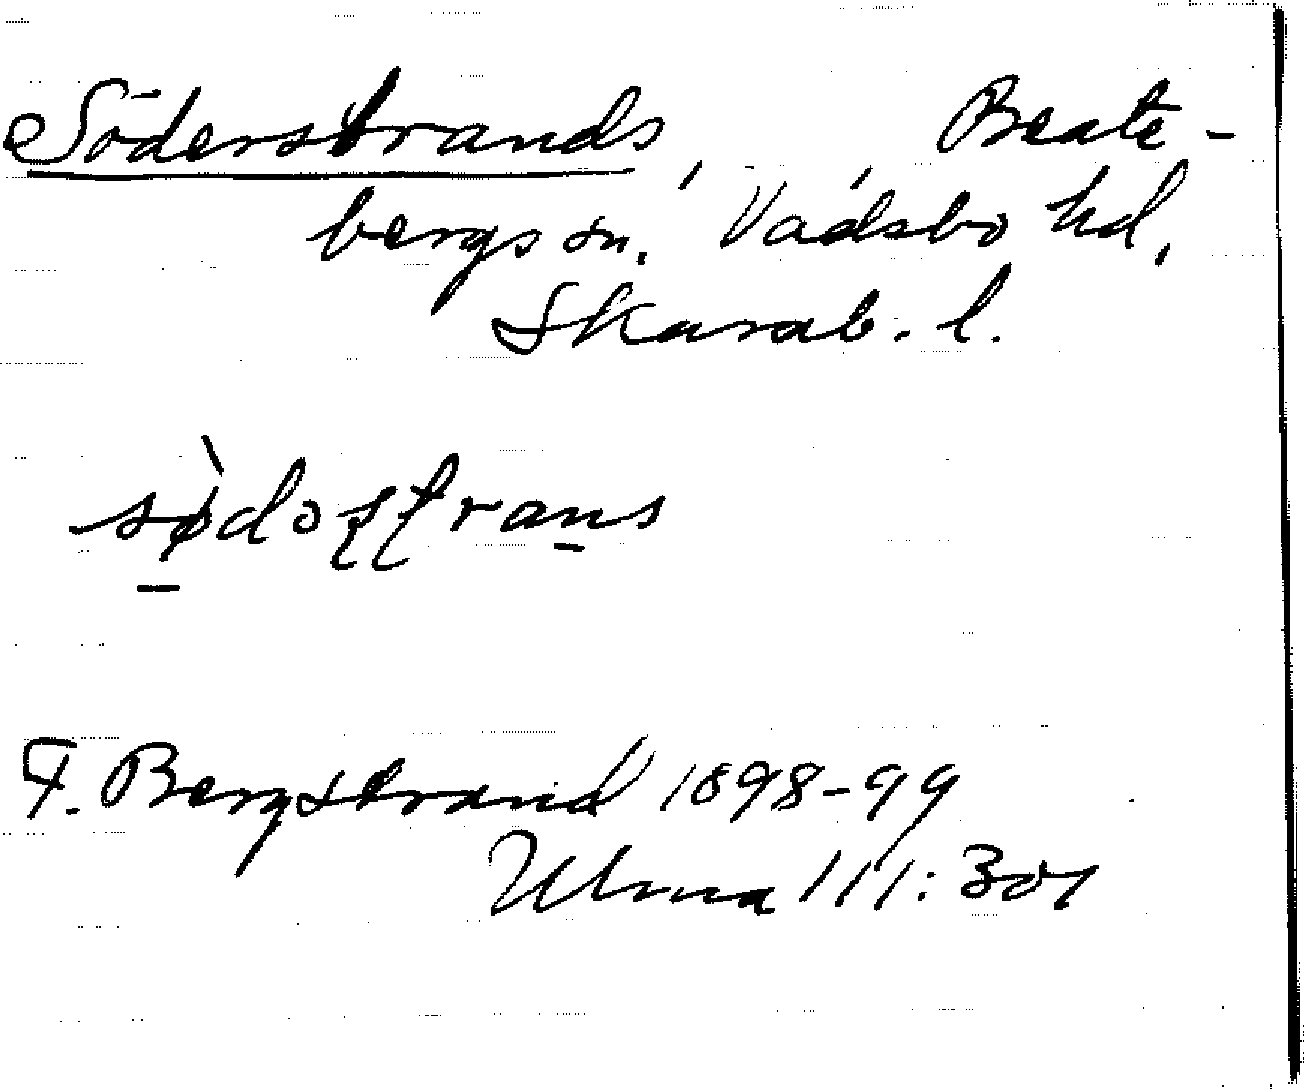 Söderstrands, Beate-
bergs sn, Vadsbo hd,
Skarab. l.
sø̀doʂʈrans
F. Bergstrand 1898-99
Ulma 111:301